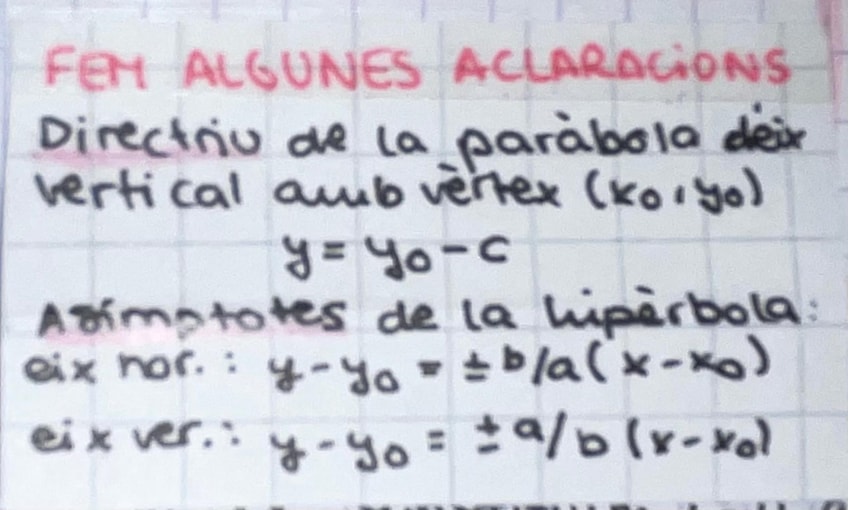 FEM ALGUNES ACLARACIONS
Directriu de la paràbola d'eix
vertical amb vèrtex (x0, y0)
y = y0 - c
Asímptotes de la hipèrbola:
eix hor.: y - y0 = ± b/a (x - x0)
eix ver.: y - y0 = ± a/b (x - x0)